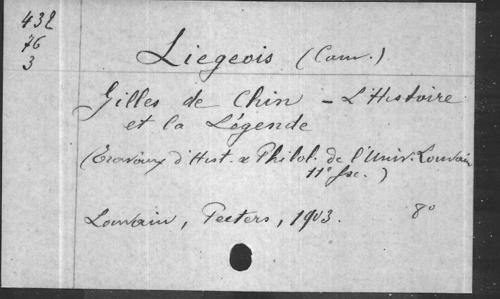 432
76
3
Liegeois (Cam.)
Gilles de Chin – L'Histoire
et la Légende
(Travaux d'Hist. & Philol. de l'Univ. Louvain
11e fsc.)
Louvain, Peeters, 1903. 8o